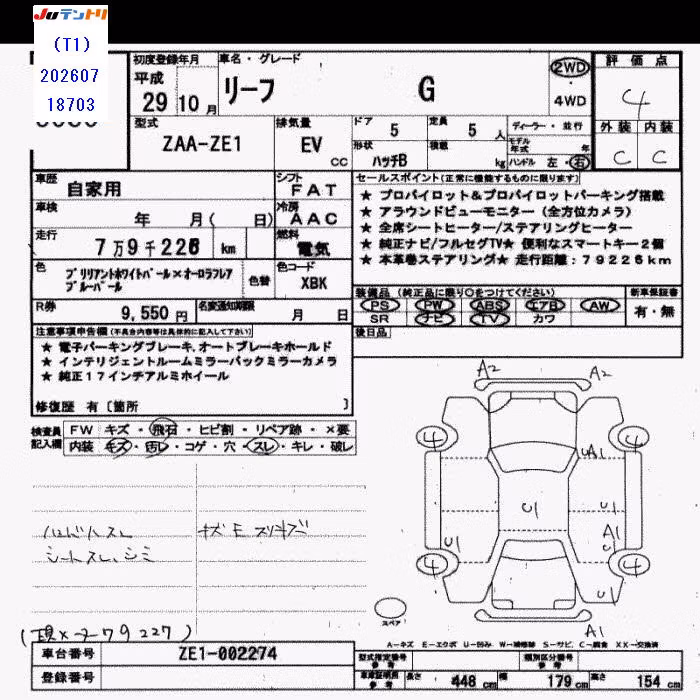 JUテントリ
(T1)
202607
18703
初度登録年月
車名・グレード
平成
29年10月
リーフ G
2WD
・
4WD
評価点
4
外装 内装
C C
型式
ZAA-ZE1
排気量
EV
CC
ドア 5
定員 5人
形状
ハッチB
積載
kg
ディーラー・並行
モデル年式 年
ハンドル 左・右
車歴
自家用
シフト
FAT
車検
年 月( 日)
冷房
AAC
走行
7万9千226 km
燃料
電気
色
ブリリアントホワイトパール×オーロラフレア
ブルーパール
色替
色コード
XBK
R券
9,550円
名変通知期限
月 日
セールスポイント(正常に機能するものに限ります)
★ プロパイロット&プロパイロットパーキング搭載
★ アラウンドビューモニター(全方位カメラ)
★ 全席シートヒーター/ステアリングヒーター
★ 純正ナビ/フルセグTV★ 便利なスマートキー2個
★ 本革巻ステアリング★ 走行距離:79226km
装備品(純正品に限り○をつけてください)
新車保証書
PS PW ABS エアB AW
SR ナビ TV カワ
有・無
後日品
注意事項申告欄(不具合内容等は具体的に記入して下さい)
★ 電子パーキングブレーキ、オートブレーキホールド
★ インテリジェントルームミラーバックミラーカメラ
★ 純正17インチアルミホイール
修復歴 有〔箇所 〕
検査員
記入欄
FW キズ・飛石・ヒビ割・リペア跡・×要
内装 キズ・汚レ・コゲ・穴・スレ・キレ・破レ
ハンドルスレ
シートスレ、シミ
A2 A2
4 4
UA1
U1 U1
A1
U1
U1
4 4
U1
A1
スペア
79227)
A-キズ E-エクボ U-凹み W-補修跡 S-サビ、C-腐食 XX-交換済
車台番号
ZE1-002274
登録番号
型式指定番号
参考
類別区分番号
参考
車庫証明用
参考
長さ 448cm
幅 179cm
高さ 154cm